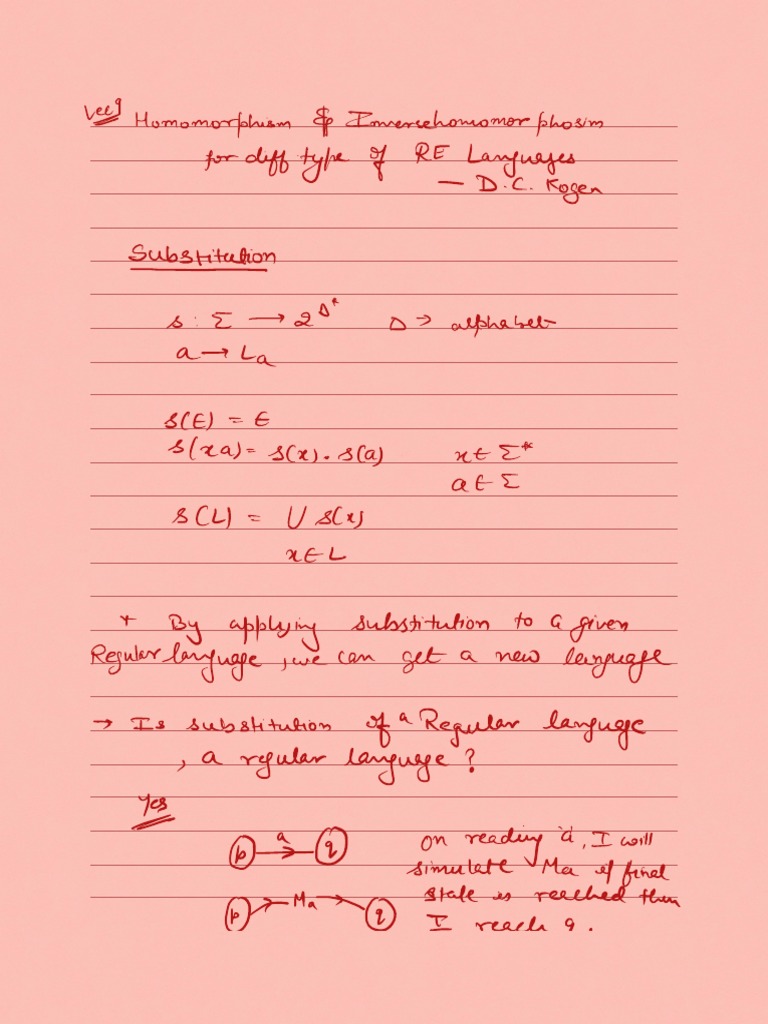 Lec 9 Homomorphism & Inversehomomorphosim
for diff type of RE Languages
— D.C. Kogen
Substitution
s : Σ → 2^Δ* Δ → alphabet
a → La
s(ε) = ε
s(xa) = s(x) . s(a) x ∈ Σ*
a ∈ Σ
s(L) = ∪ s(x)
x ∈ L
* By applying substitution to a given
Regular language, we can get a new language
→ Is substitution of a Regular language
, a regular language ?
Yes
p a q On reading 'a', I will
simulate Ma if final
state is reached then
p Ma q I reach q.